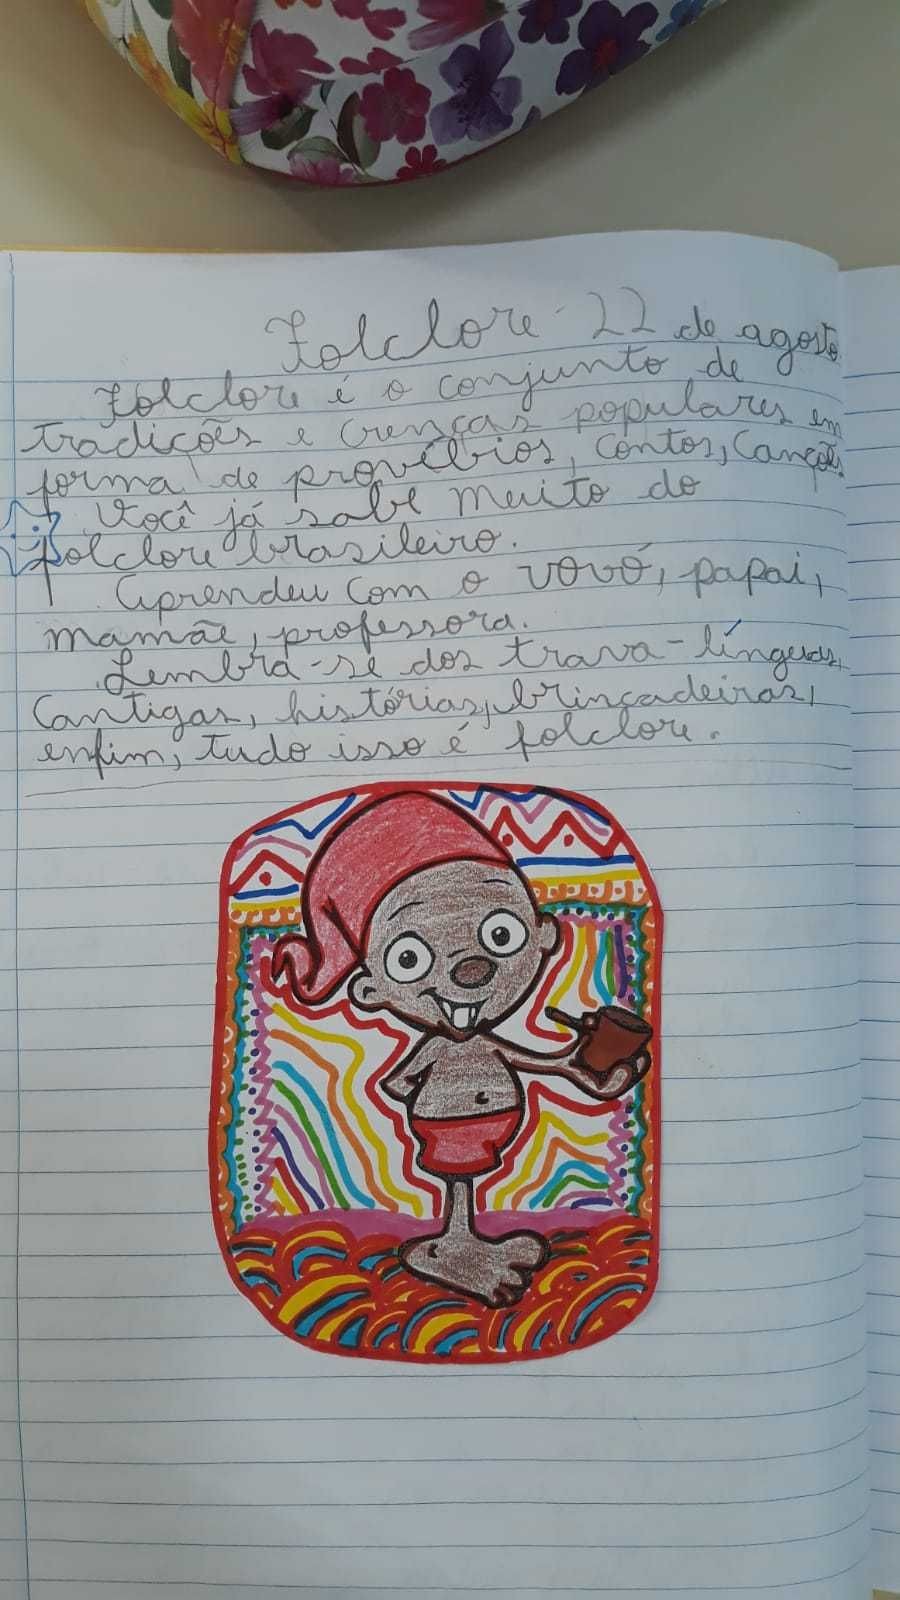 Folclore - 22 de agosto.
Folclore é o conjunto de
tradições e crenças populares em
forma de provébios, contos, canções
Você já sabe muito do
folclore brasileiro.
Aprendeu com o vovó, papai,
mamãe, professora.
Lembra-se dos trava-línguas,
cantigas, histórias, brincadeiras,
enfim, tudo isso é folclore.